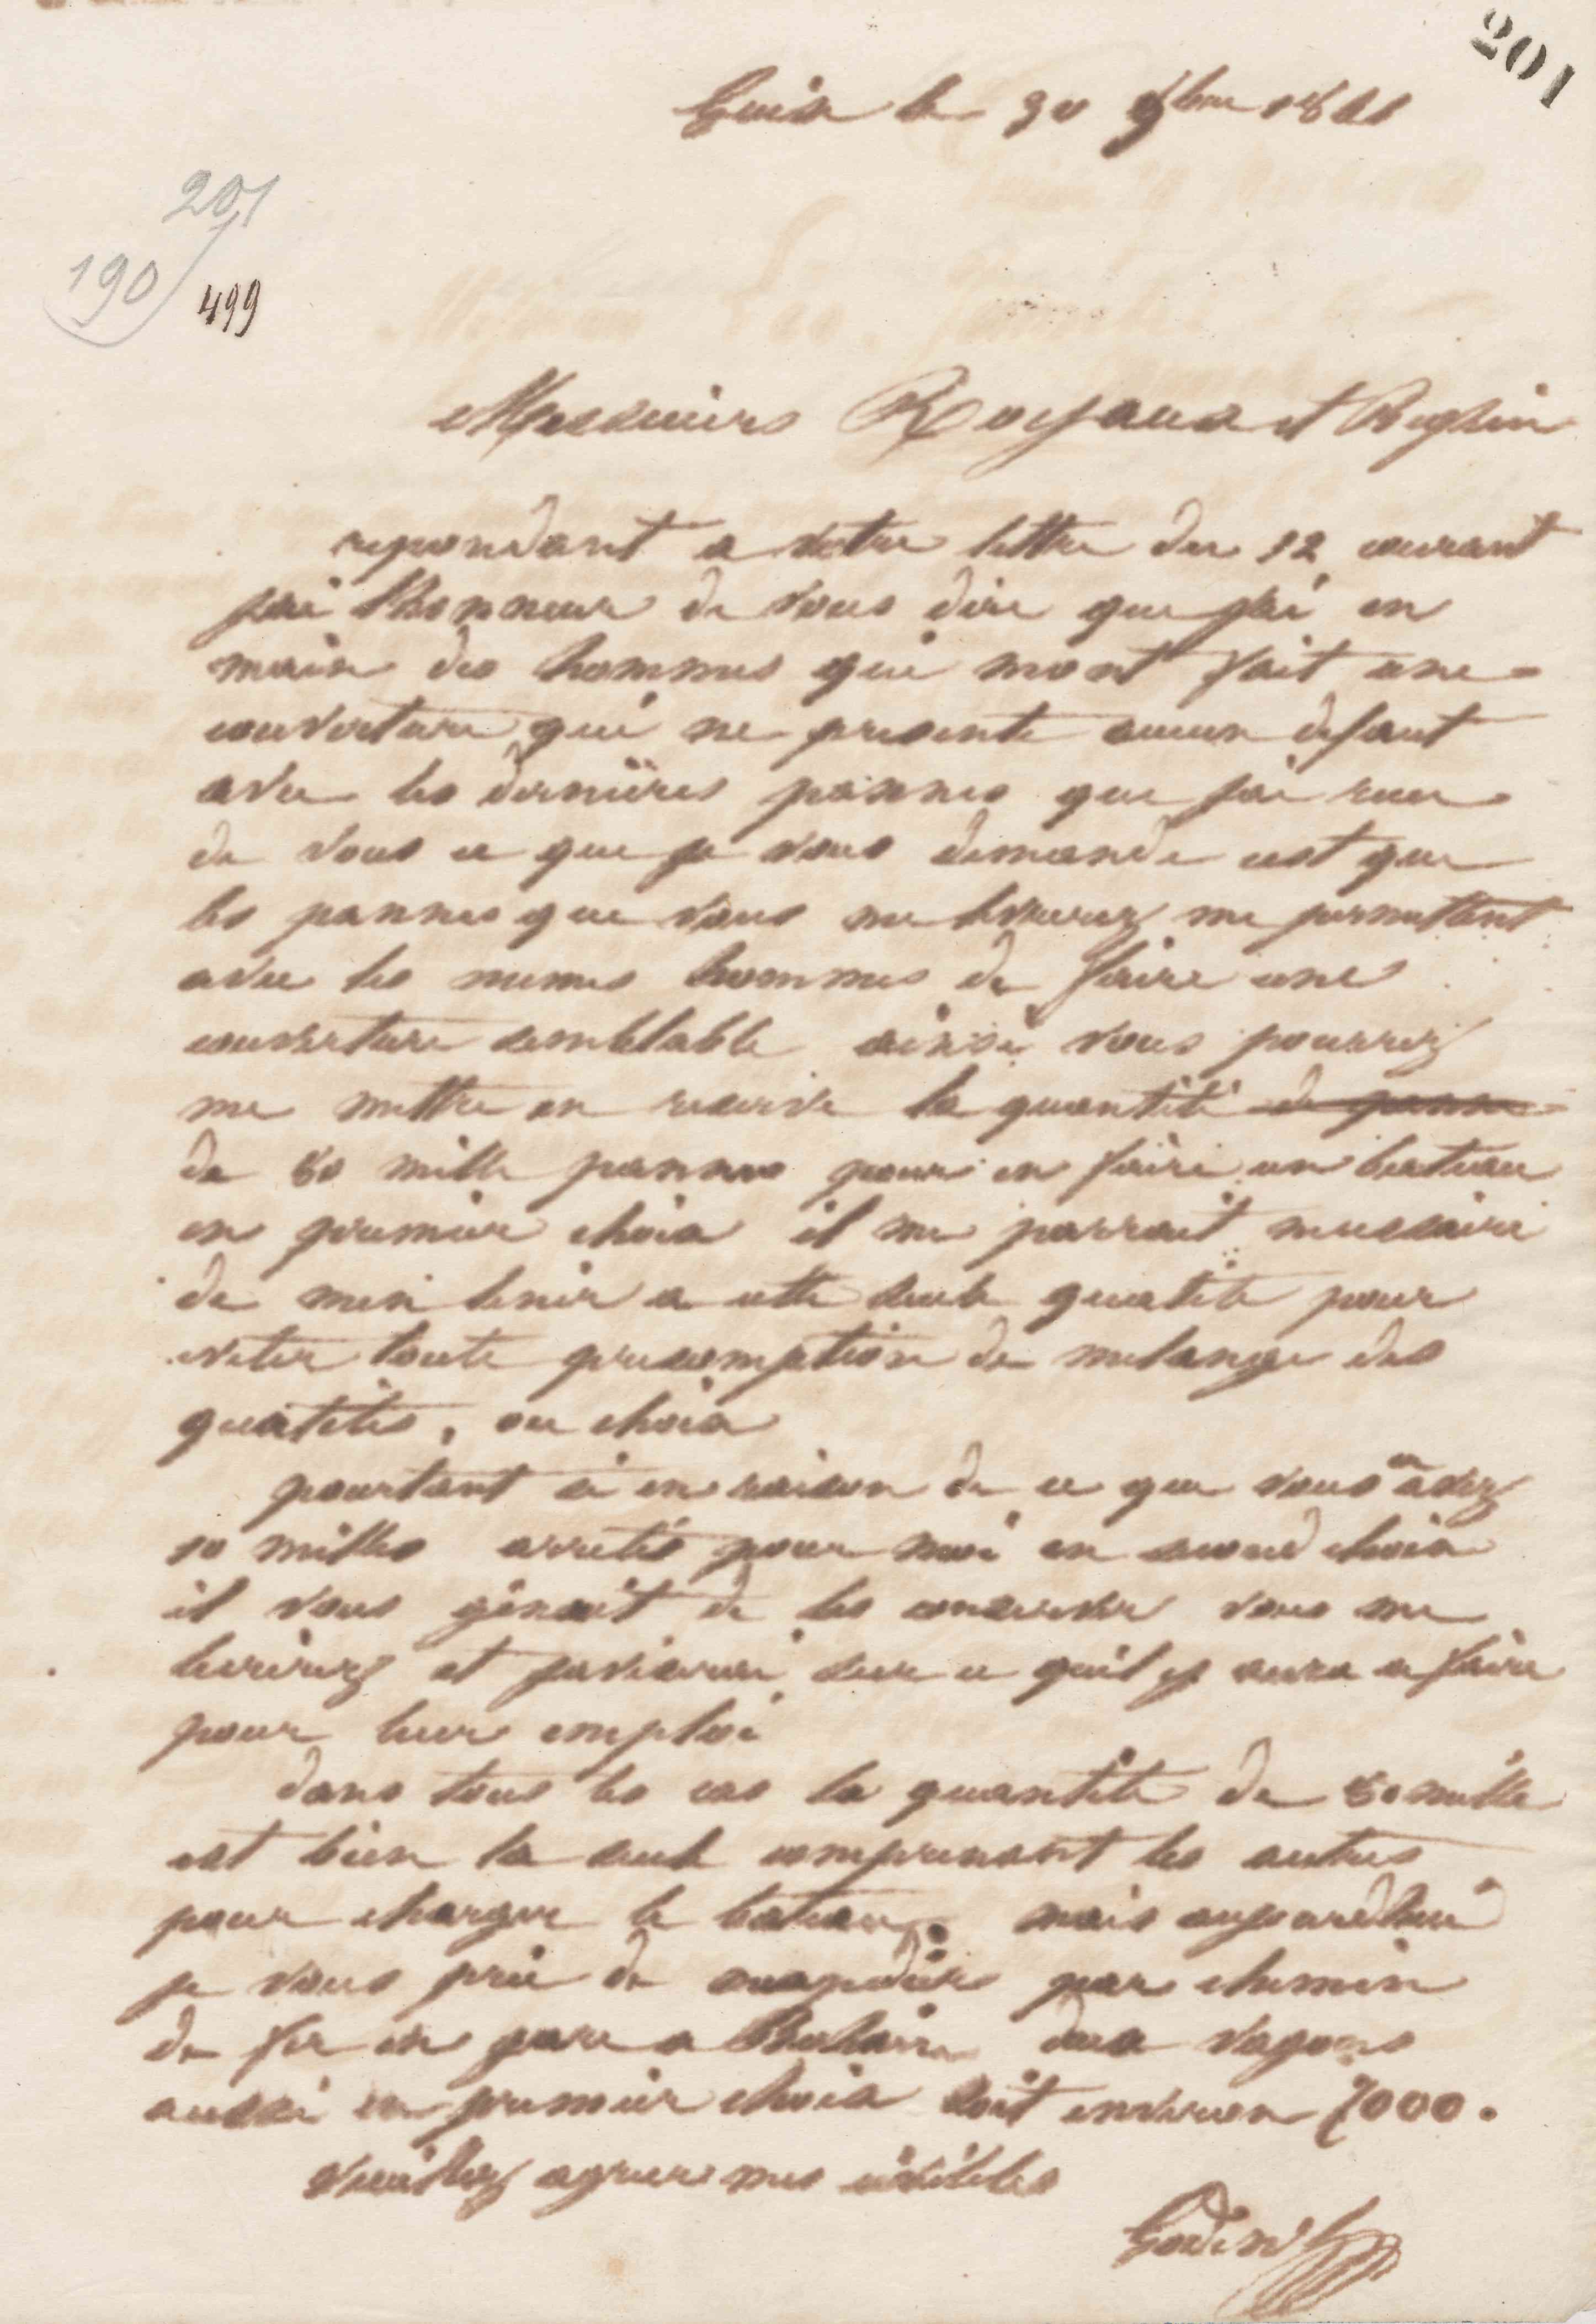 201
Guise le 30 9bre 1861
201
190
499
Messieurs Royaux et Beghin
repondant a votre lettre du 12 courant
jai lhonneur de vous dire que jai en
main des hommes qui mont fait une
couverture qui ne presente aucun defaut
avec les dernières pannes que jai recu
de vous ce que je vous demande cest que
les pannes que vous me livrerez me permettent
avec les memes hommes de faire une
couverture semblable ainsi vous pourrez
me mettre en reserve la quantité de panne
de 80 mille pannes pour en faire un bateau
en premier choix il me parrait necessaire
de men tenir a cette seule quatité pour
eviter toute presomption de melange des
quatités, ou choix
pourtant si en raison de ce que vous en avez
10 milles arretés pour moi en second choix
il vous génait de les conserver vous me
lecrirez et javiserai sur ce quil y aura a faire
pour leur emploi
dans tous les cas la quantité de 80 mille
est bien la seule comprenant les autres
pour charger le bateau. mais aujourdhui
je vous prie de mexpedier par chemin
de fer en gare a Bohain deux vagons
aussi en premier choix soit environ 7000.
Veuillez agreer mes civilités
Godin